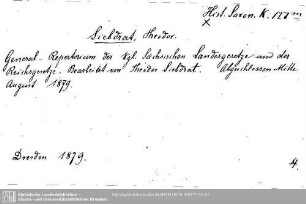 Hist. Saxon. K. 177m
x
Siebdrat, Theodor.
General-Repertorium der Kgl. Sächsischen Landesgesetze und der
Reichsgesetze. Bearbeitet von Theodor Siebdrat. Abgeschlossen Mitte
August 1879.
Dresden 1879.
4.
Sächsische Landesbibliothek -
Staats- und Universitätsbibliothek Dresden